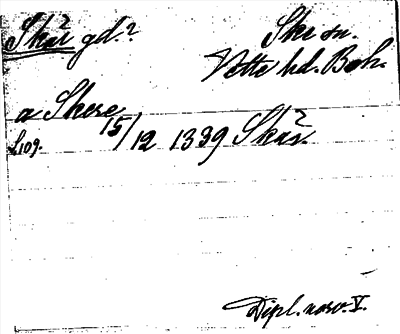 Skår gd.? Ske sn.
Vette hd. Boh.
a Skere 15/12 1339 Skår.
L109.
Dipl. norv. V.